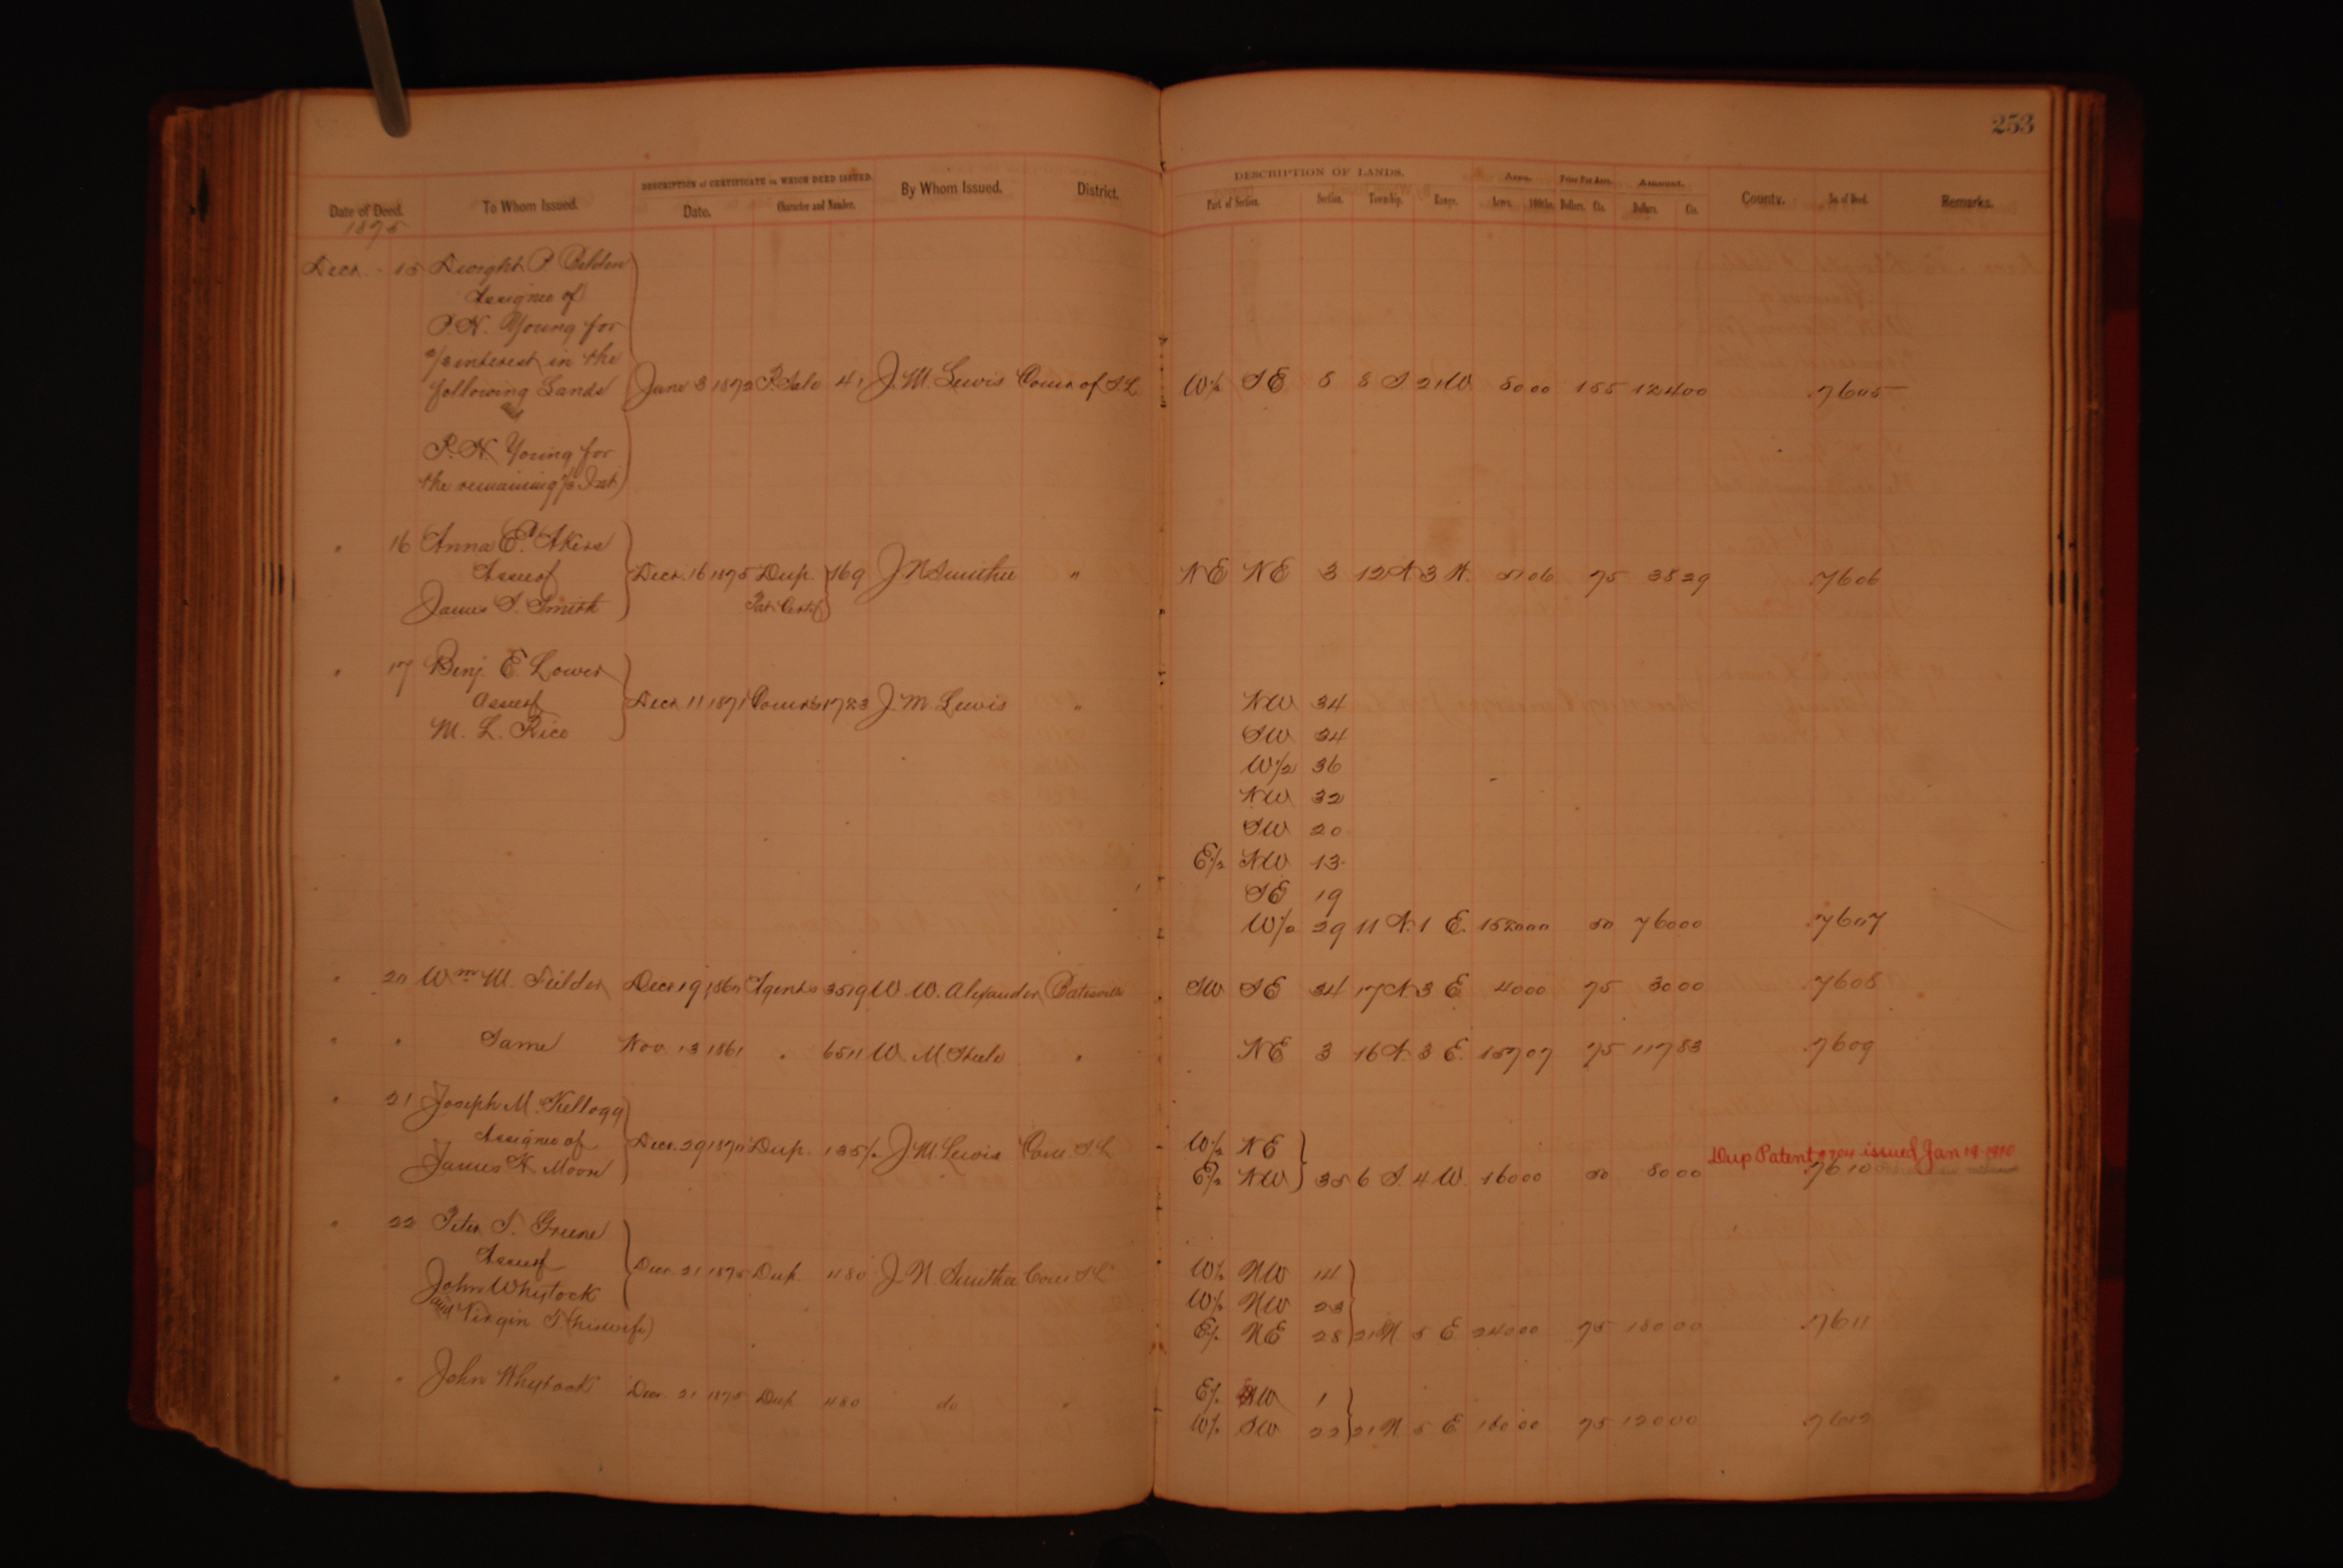 253
DESCRIPTION of CERTIFICATE on WHICH DEED ISSUED.
DESCRIPTION OF LANDS.
Date of Deed. To Whom Issued. Date. Character and Number. By Whom Issued. District. Part of Section. Section. Township. Range. Area. Acres. 100ths. Price Per Acre. Dollars. Cts. Amount. Dollars. Cts. County. No. of Deed. Remarks.
1875
Decr. 15 Dwight P. Belden
Assignee of
P. N. Young for
interest in the
following Lands June 3 1872 P. Sale 41 J. M. Lewis Comr of S L W½ SE 8 8 S 21 W 80 00 1 55 124 00 7605
and
P. N. Young for
the remaining Int
" 16 Anna E. Akers
Assee of Decr. 16 1875 Dup. 169 J N Smithee " NE NE 3 12 N 3 W. 51 06 75 38 29 7606
James S. Smith Pat. Certif
" 17 Benj. E. Lower
Assee of Decr. 11 1871 Comrs 1783 J. M. Lewis " NW 34
M. L. Rice SW 34
W/2 36
NW 32
SW 20
E/2 NW 13
SE 19
W/2 29 11 N. 1 E. 1520 00 50 760 00 7607
" 20 Wm M. Fielder Decr 19 1860 Agents 3519 W. W. Alexander Batesville SW SE 34 17 N. 3 E 40 00 75 30 00 7608
" " Same Nov. 13 1861 " 6511 W. M Steele " NE 3 16 N. 3 E. 157 07 75 117 83 7609
" 21 Joseph M. Kellogg
Assignee of Decr. 29 1870 Dup. 135½ J M. Lewis Com. S L W/2 NE
Dup Patent issued Jan 19 1910
James H. Moore E/2 NW 35 6 S. 4 W. 160 00 50 80 00 7610
" 22 Peter T. Greene
Assee of Dec. 21 1875 Dup. 480 J. N Smithee Com S L W/2 NW 14
John Whytock W/2 NW 23
and Virgin T. (his wife) E/2 NE 28 21 N 5 E 240 00 75 180 00 7611
" " John Whytock Dec. 21 1875 Dup. 480 do " E/2 1
W/2 SW 22 21 N 5 E 160 00 75 120 00 7612